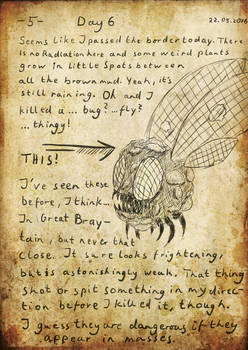 -5- Day 6 22.03.2016
Seems like I passed the border today. There
is no Radiation here and some weird plants
grow in little spots between
all the brown mud. Yeah, it's
still raining. Oh and I
killed a ... bug? ... fly?
... thingy!
THIS!
I've seen these
before, I think...
In Great Bray-
tain, but never that
close. It sure looks frightening,
but is astonishingly weak. That thing
shot or spit something in my direc-
tion before I killed it, though.
I guess they are dangerous if they
appear in masses.